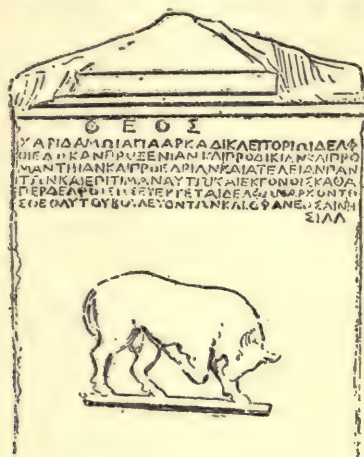 ΘΕΟΣ
ΧΑΡΙΔΑΜΩΙ ΑΡΚΑΔΙ ΚΛΕΙΤΟΡΙΩΙ ΔΕΛΦ
ΟΙ ΕΔΩΚΑΝ ΠΡΟΞΕΝΙΑΝ ΚΑΙ ΠΡΟΔΙΚΙΑΝ ΚΑΙ ΠΡΟ
ΜΑΝΤΗΙΑΝ ΚΑΙ ΠΡΟΕΔΡΙΑΝ ΚΑΙ ΑΤΕΛΕΙΑΝ ΠΑΝ
ΤΩΝ ΚΑΙ ΕΠΙΤΙΜΑΝ ΑΥΤΩΙ ΚΑΙ ΕΚΓΟΝΟΙΣ ΚΑΘΑ
ΠΕΡ ΔΕΛΦΟΙΣ ΕΥΕΡΓΕΤΑΙ ΔΕΛΦΩΝ ΑΡΧΟΝΤΟ
ΒΟΥΛΕΥΟΝΤΩΝ